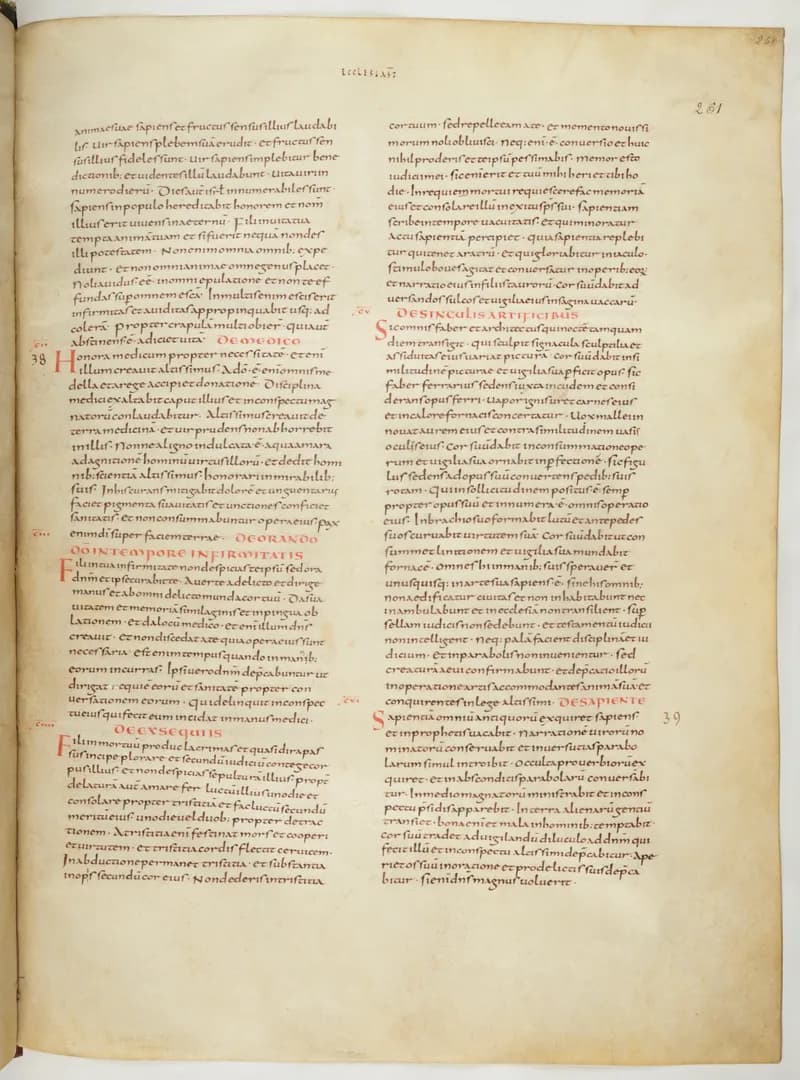 ECCLESIAST
261
animaesuae sapiens et fructus sensus illius laudabi
lis. Uir sapiens plebem suā erudit. et fructus sen
sus illius fideles sunt. Uir sapiens implebitur bene
dictionib; et uidentes illū laudabunt. Uita uiri in
numero dierū. Dies aūt isrł innumerabiles sunt.
sapiens in populo hereditabit honorem et nom̄
illius erit uiuens in aeternū. Fili in uita tua
tempta animā tuam et si fuerit nequā non des
illi potestatem. Non enim omnia omnib; expe
diunt. et non omni animae omne genus placet.
Noli auidus ee in omni epulatione et non te ef
fundas sup omnem escā. In multis enim escis erit
infirmitas et auiditas appropinquabit usq; ad
colerā. propter crapulā multi obier. qui aut
abstinens ē adiciet uitā. DE MEDICO
38
Honora medicum propter necessitatē. et eni
illum creauit altissimus. A dō ē eni omnis me
della et a rege accipiet donatione. Disciplina
medici exaltabit caput illius et in conspectu mag
natorū conlaudabitur. Altissimus creauit de
terra medicinā et uir prudens non abhorrebit
in illis. Nonne a ligno indulcata ē aqua amara
ad agnitionē hominū uirtus illorū. et dedit homi
nib; scientiā altissimus honorari in mirabilib;
suis. In his curans mitigabit dolorē et unguentarius
faciet pigmenta suauitatis et unctiones conficiet
sanitatis et non consummabuntur opera eius. pax
enim di super faciem terrae. DE ORANDO
DŌ IN TEMPORE INFIRMITATIS
Fili in tua infirmitate non despicias te ipsū sed ora
dnm et ipse curabit te. Auerte a delicto et dirige
manus et ab omni delicto munda cor tuū. Da sua
uitatem et memoriā similaginis et inpingua ob
lationem. et da locū medico. et eni illum dns
creauit. et non discedat a te quia opera eius sunt
necessaria. Est enim tempus quando in manib;
eorum incurras. Ipsi uero dnm depcabuntur ut
dirigat requiē eorū et sanitatē propter con
uersationem eorum. Qui delinquit in conspec
tu eius qui fecit eum incidat in manus medici.
DE EXSEQUIIS
Fili in mortuū produc lacrimas et quasi dira pas
sus incipe plorare et secundū iudiciū contege cor
pus illius et non despicias sepulturā illius. propt
delaturā aut amare fer luctū illius uno die et
consolare propter tristitiā et fac luctū secundū
meritū eius uno die uel duob; propter detrac
tionem. A tristitia eni festinat mors et cooperi
et uirtutem. et tristitia cordis flectit ceruicem.
In abductione permanet tristitia. et substantia
inopis secundū cor eius. Non dederis in tristitia
cor tuum. sed repelle eam a te. et memento nouissi
morum noli obliuisci. Neq; eni ē conuersio et huic
nihil proderis et te ipsū pessimabis. Memor esto
iudicii mei. sic enī erit et tuū mihi heri et tibi ho
die. In requiem mortui requiescere fac memoriā
eius et consolare illū in exitu sps sui. Sapientiam
scribe in tempore uacuitatis. et qui minoratur
actu sapientiā percipiet. quia sapientia replebi
tur qui tenet aratrū. et qui gloriabitur in iaculo.
stimulo boues agitat et conuersatur in operib; eoꝝ
et narratio eius in filiis taurorū. Cor suū dabit ad
uersandos sulcos et uigilia eius in sagina uaccarū.
DE SINCULIS ARTIFICIBUS
Sic omnis faber et architectus qui noctē tamquam
diem transigit. qui sculpit signacula sculptilia et
assiduitas eius uariat picturā. Cor suū dabit in si
militudinē picturae et uigilia sua pficit opus. sic
faber ferrarius sedens iuxta incudem et consi
derans opus ferri. Uapor ignis uret carnes eius
et in calore fornacis concertatur. Uox mallei in
nouat aurem eius et contra similitudinem uasis
oculis eius. Cor suū dabit in consummatione ope
rum et uigilia sua ornabit in pfectionē. sic figu
lus sedens ad opus suū conuertens pedib; suis
rotam. Qui in sollicitudinem positus ē semp
propter opus suū et in numera ē omnis operatio
eius. In brachio suo formabit lutū et ante pedes
suos curuabit uirtutem suā. Cor suū dabit ut con
summet linitionem et uigilia sua mundabit
fornacē. Omnes hi in manib; suis sperauer et
unusquisq; in arte sua sapiens ē. sine his omnib;
non aedificatur ciuitas et non inhabitabunt nec
inambulabunt et in ecclesiā non transilient. sup
sellam iudicis non sedebunt. et testamentū iudicii
non intelligent. Neq; palā facient disciplinā et iu
dicium. et in parabolis non inuenientur. sed
creaturā aeui confirmabunt. et depcatio illorū
in operatione artis accommodantes animā suā et
conquirentes in lege altissimi. DE SAPIENTE
39
Sapientiā omniū antiquorū exquiret sapiens
et in prophetis uacabit. Narrationē uirorū no
minatorū conseruabit et in uersutias parabo
larum simul introibit. Occulta prouerbiorū ex
quiret. et in absconditis parabolarū conuersabi
tur. In medio magnatorū ministrabit et in cons
pectu psidis apparebit. In terrā alienarū gentiū
transiet. bona enī et mala in hominib; temptabit.
Cor suū tradet ad uigilandū diluculo ad dnm qui
fecit illū et in conspectu altissimi depcabitur. Ape
riet os suū in oratione et pro delictis suis depca
bitur. si eni dns magnus uoluerit.